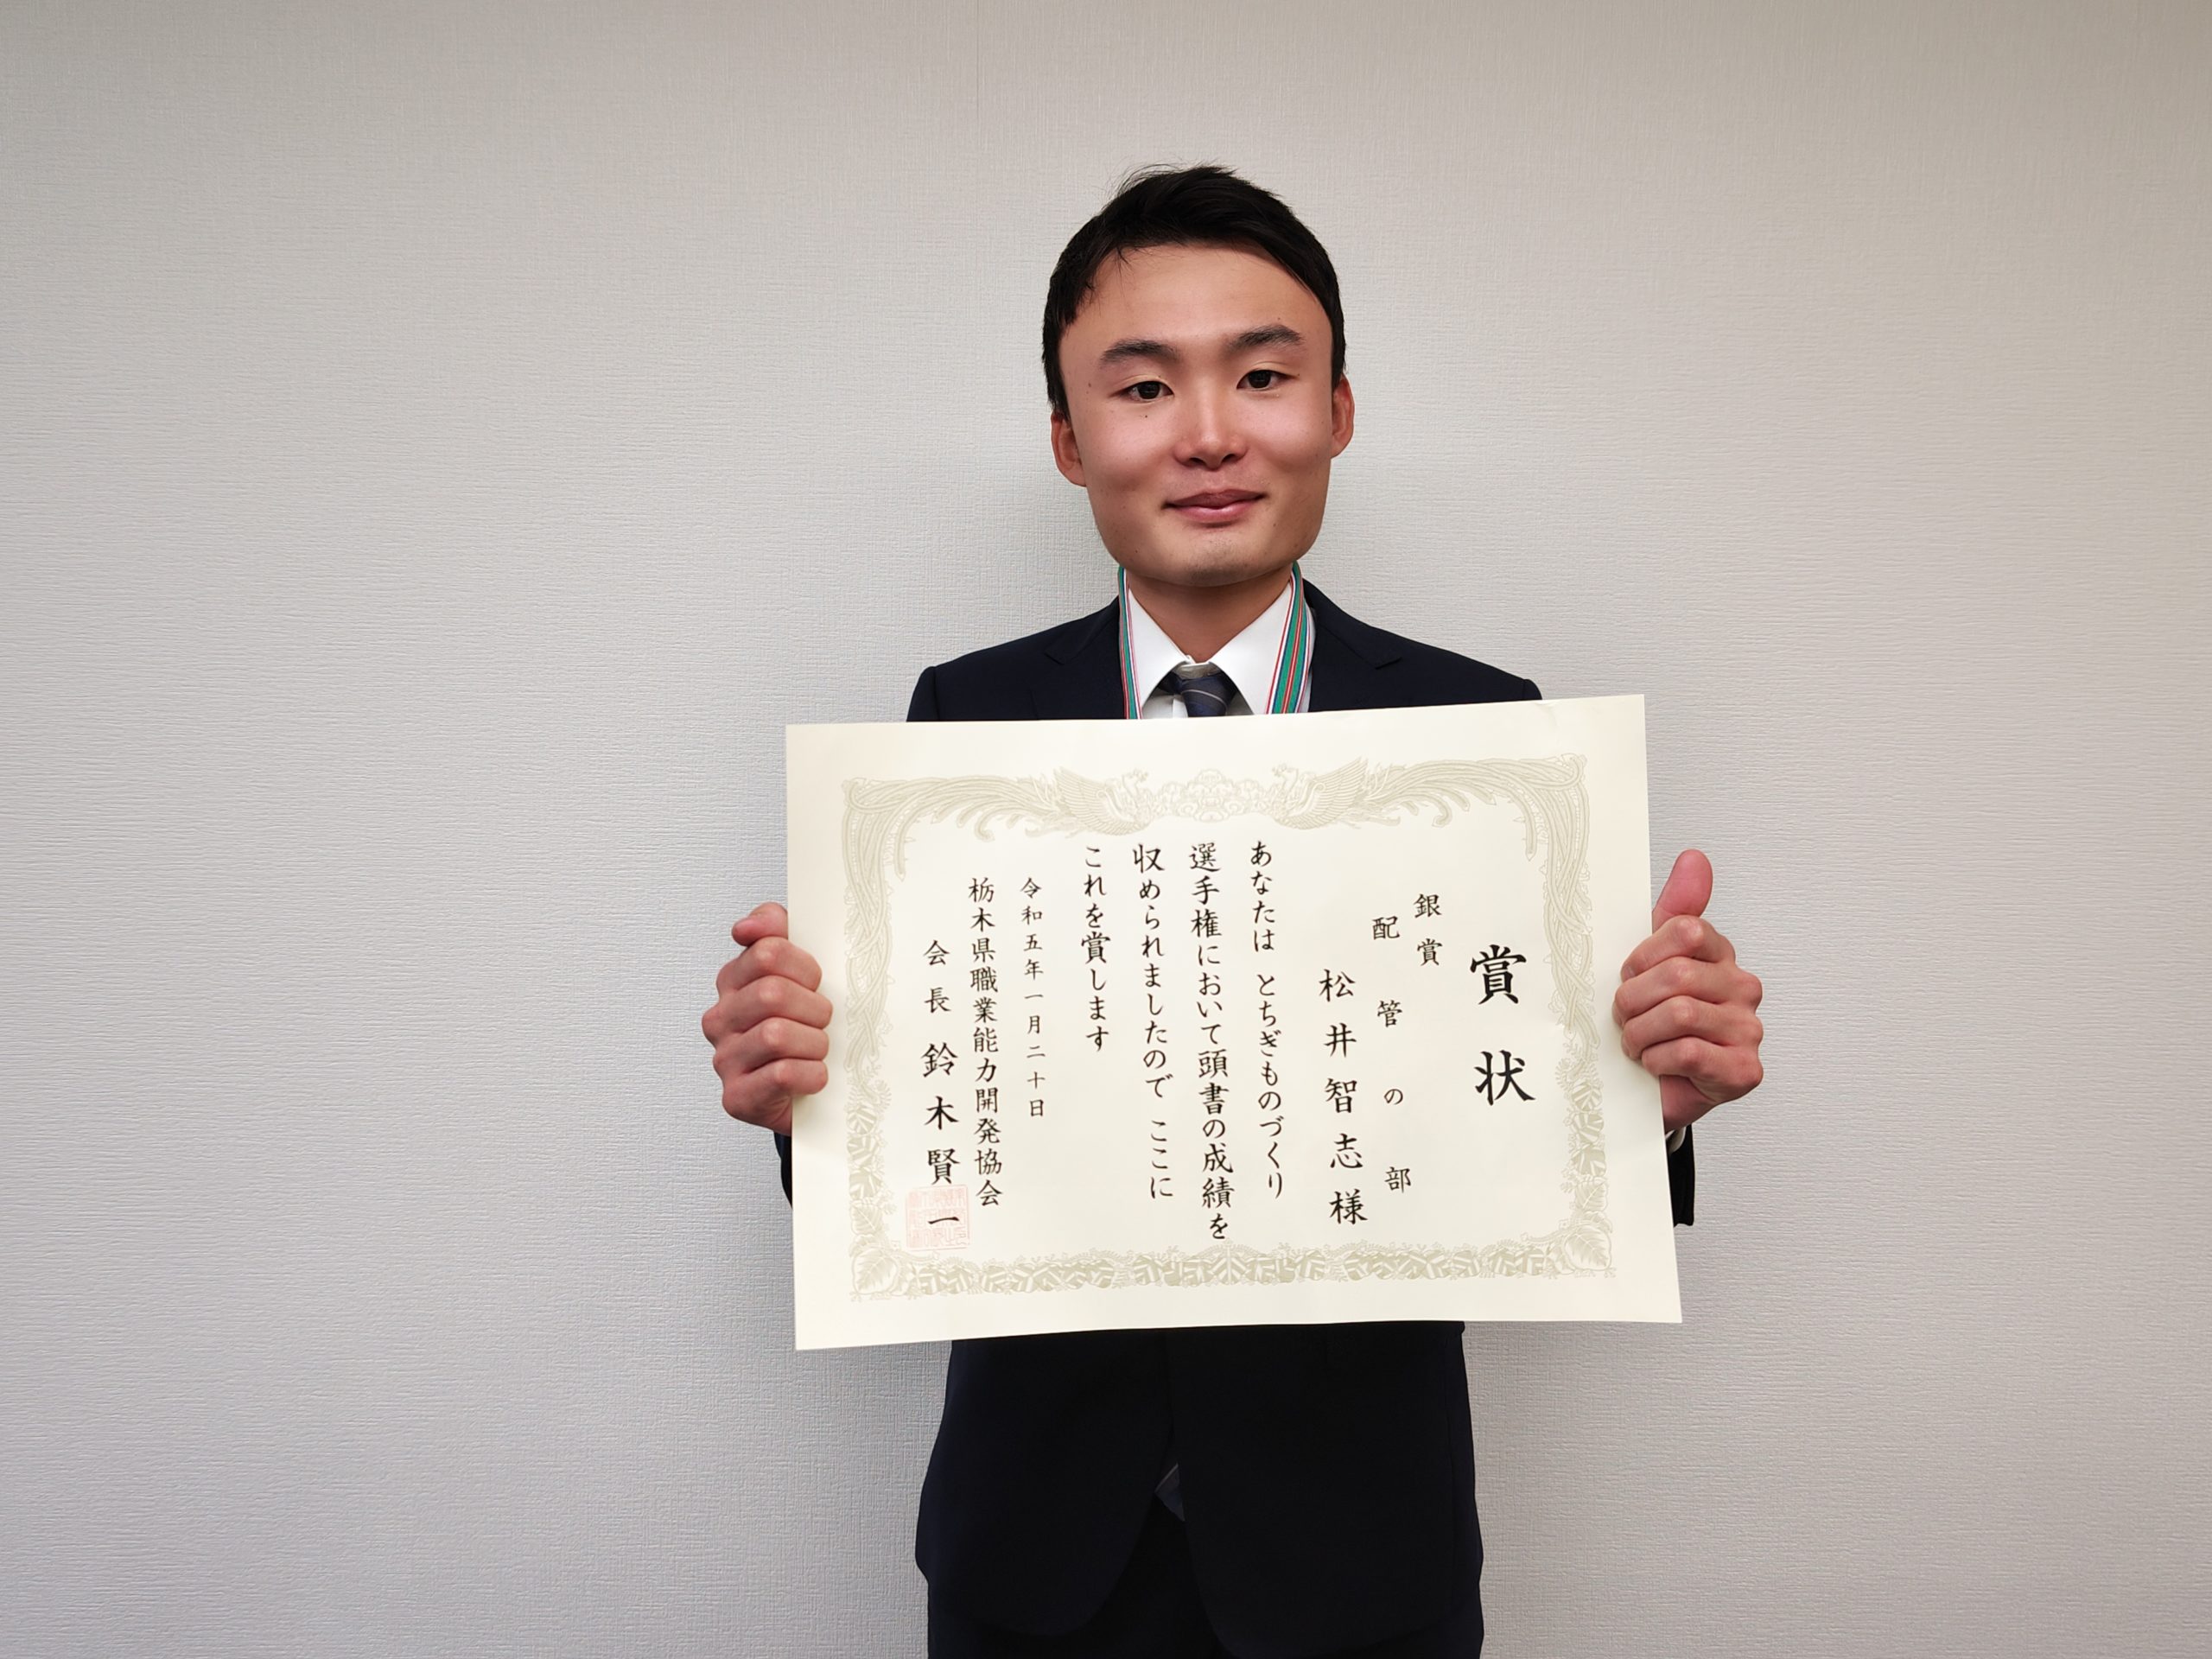 賞状
銀賞
配管の部
松井智志様
あなたは とちぎものづくり
選手権において頭書の成績を
収められましたので ここに
これを賞します
令和五年一月二十日
栃木県職業能力開発協会
会長 鈴木賢一